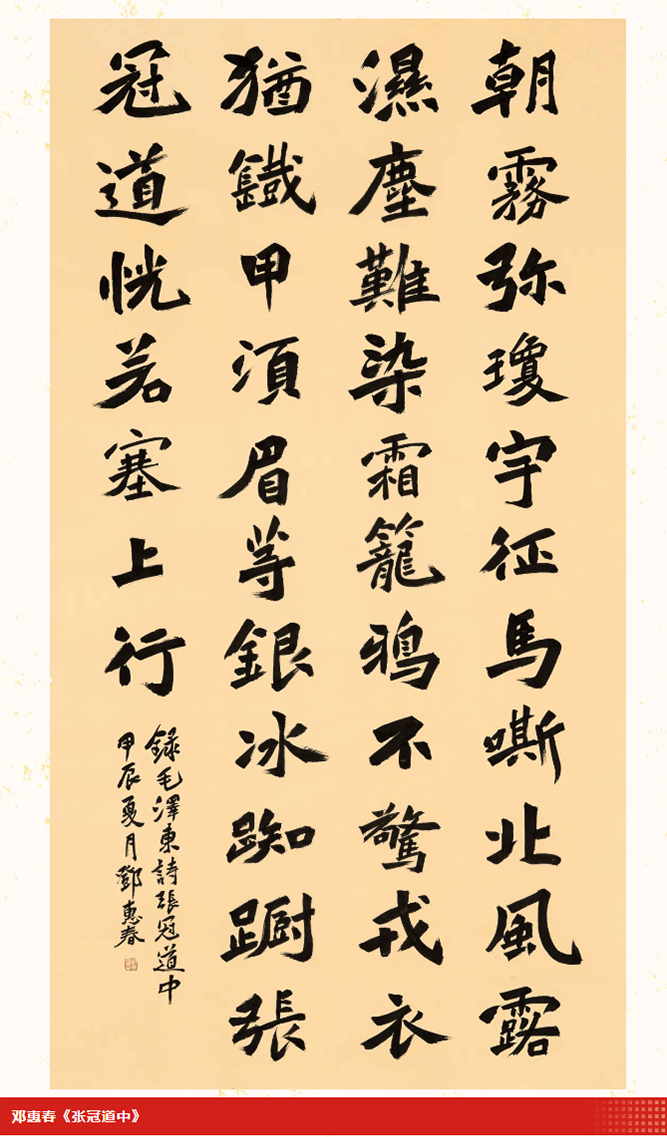 朝霧弥瓊宇征馬嘶北風露
濕塵難染霜籠鴉不驚戎衣
猶鐵甲須眉等銀冰踟蹰張
冠道恍若塞上行
録毛澤東詩張冠道中
甲辰夏月鄧惠春
邓惠春《张冠道中》